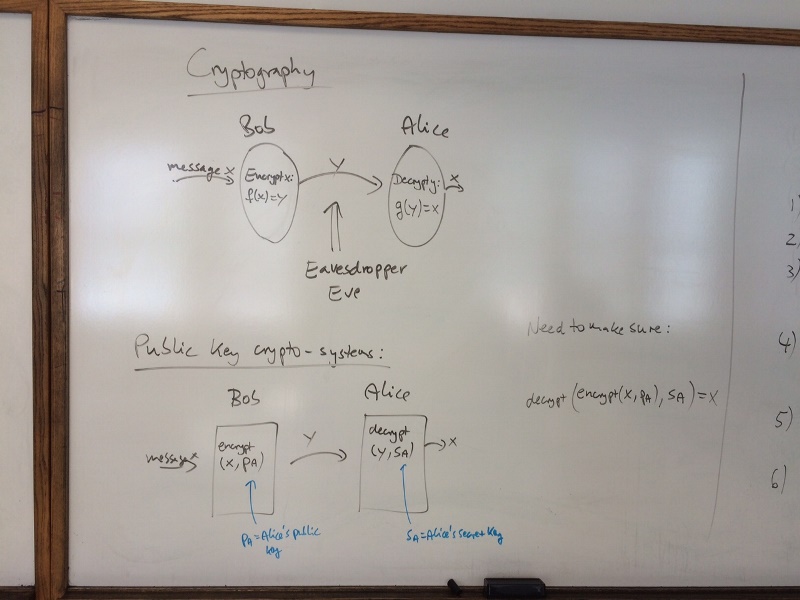 Cryptography
Bob
Alice
message x
Encrypt x:
f(x)=y
y
Decrypt y:
g(y)=x
x
Eavesdropper
Eve
Need to make sure:
decrypt(encrypt(x,pA),sA)=x
Public Key crypto-systems:
Bob
Alice
message x
encrypt
(x,pA)
y
decrypt
(y,sA)
x
pA=Alice's public
key
sA=Alice's secret key
1)
2)
3)
4)
5)
6)